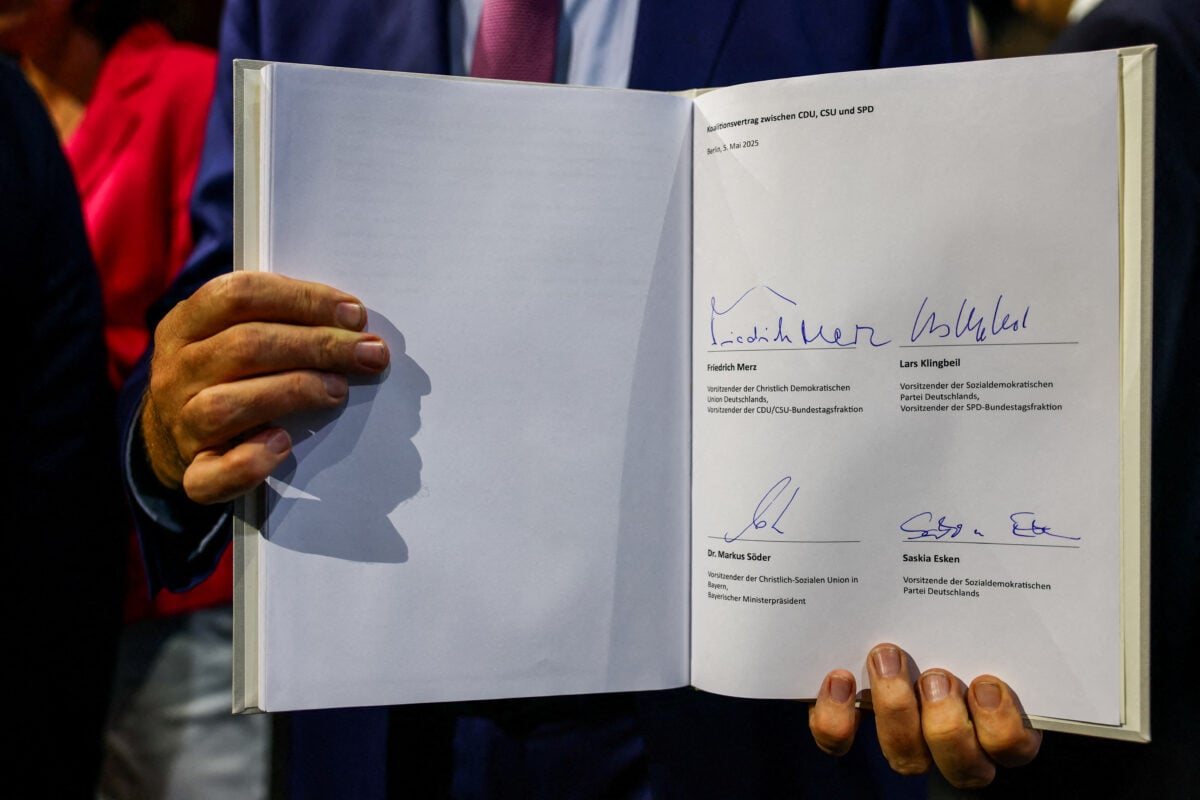 Koalitionsvertrag zwischen CDU, CSU und SPD
Berlin, 5. Mai 2025
Friedrich Merz
Friedrich Merz
Vorsitzender der Christlich Demokratischen
Union Deutschlands,
Vorsitzender der CDU/CSU-Bundestagsfraktion
Lars Klingbeil
Vorsitzender der Sozialdemokratischen
Partei Deutschlands,
Vorsitzender der SPD-Bundestagsfraktion
Dr. Markus Söder
Vorsitzender der Christlich-Sozialen Union in
Bayern,
Bayerischer Ministerpräsident
Saskia Esken
Vorsitzende der Sozialdemokratischen
Partei Deutschlands